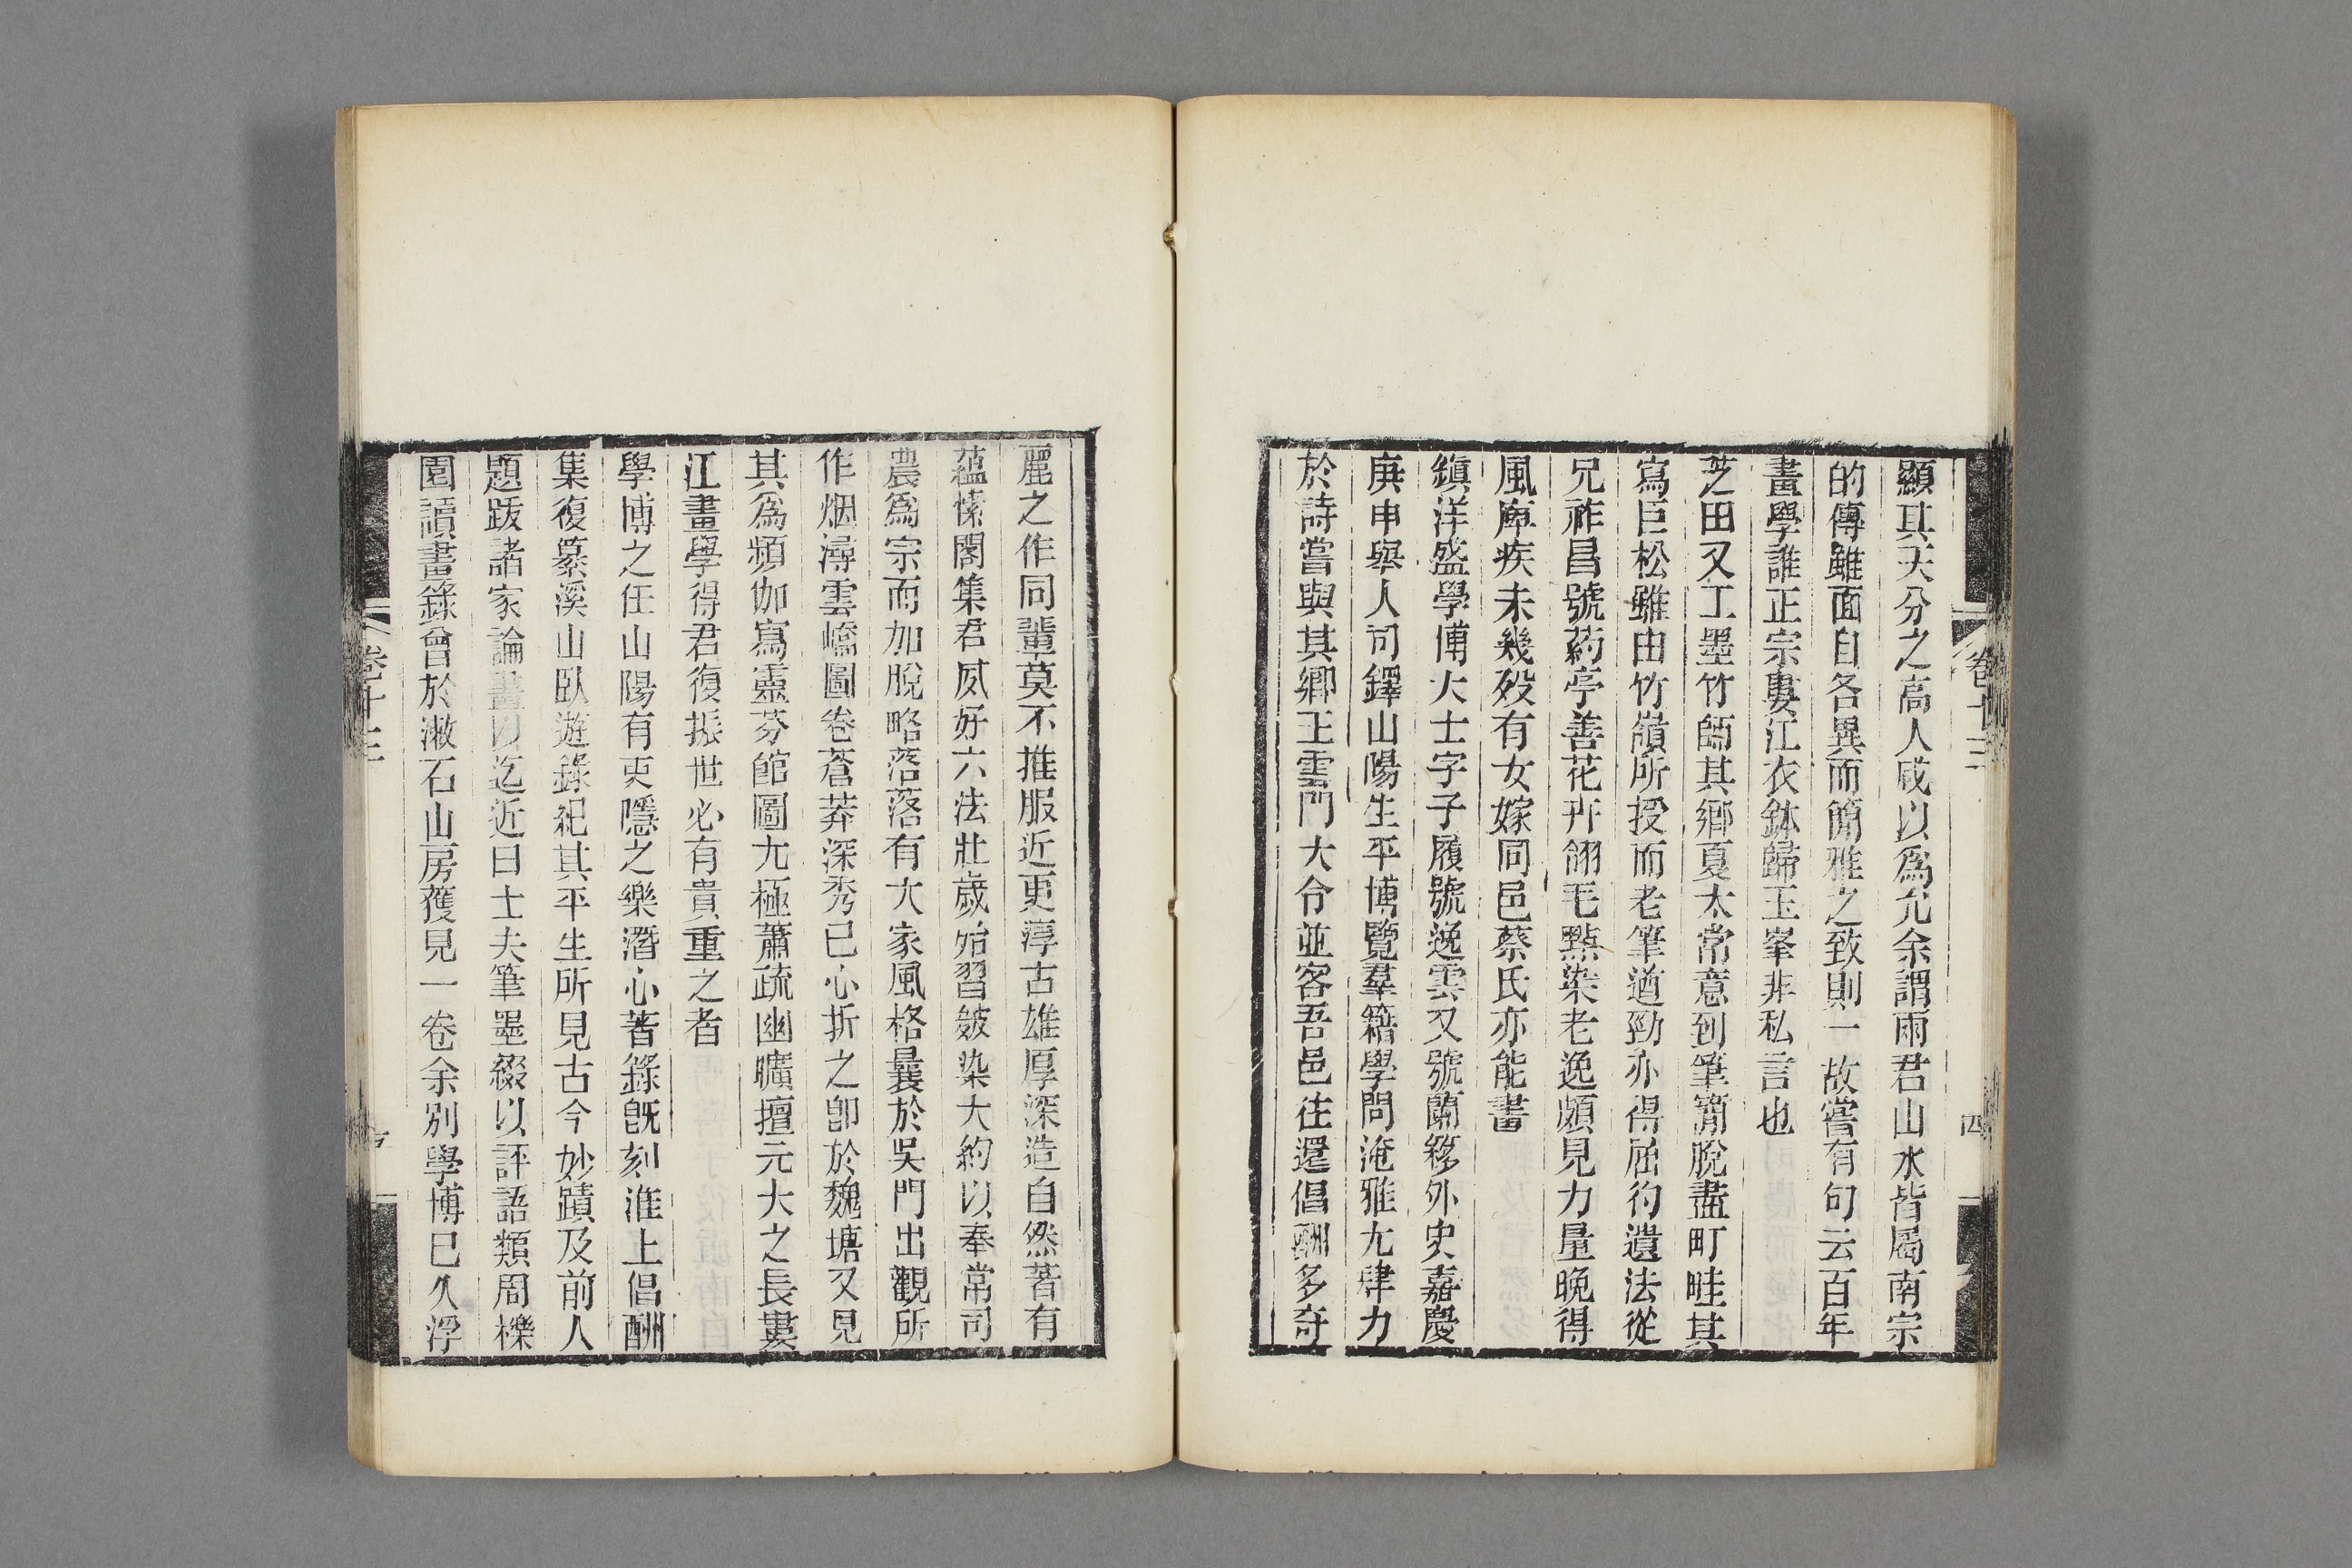 卷十三
四
顯其天分之高人咸以爲允余謂兩君山水皆屬南宗
的傳雖面目各異而簡雅之致則一故嘗有句云百年
畫學誰正宗婁江衣鉢歸玉峯非私言也
芝田又工墨竹師其鄉夏太常意到筆窮脫盡町畦其
寫巨松雖由竹嶺所授而老筆遒勁亦得屈彴遺法從
兄祚昌號葯亭善花卉翎毛點染老逸頗見力量晚得
風痺疾未幾歿有女嫁同邑蔡氏亦能畫
鎭洋盛學博大士字子履號逸雲又號蘭簃外史嘉慶
庚申舉人司鐸山陽生平博覽羣籍學問淹雅尤肆力
於詩嘗與其鄉王雲門大令並客吾邑往還倡酬多奇
麗之作同輩莫不推服近更淳古雄厚深造自然著有
蘊愫閣集君夙好六法壯歲始習皴染大約以奉常司
農爲宗而加脫略落落有大家風格曩於吳門出觀所
作烟潯雲嶠圖卷蒼莽深秀已心折之卽於魏塘又見
其爲頻伽寫靈芬館圖尤極蕭疏幽曠擅元大之長婁
江畫學得君復振世必有貴重之者
學博之任山陽有吏隱之樂潛心著錄旣刻淮上倡酬
集復纂溪山臥遊錄紀其平生所見古今妙蹟及前人
題跋諸家論畫以迄近日士夫筆墨綴以評語類周櫟
園讀畫錄曾於潄石山房獲見一卷余別學博巳久浮
卷十三